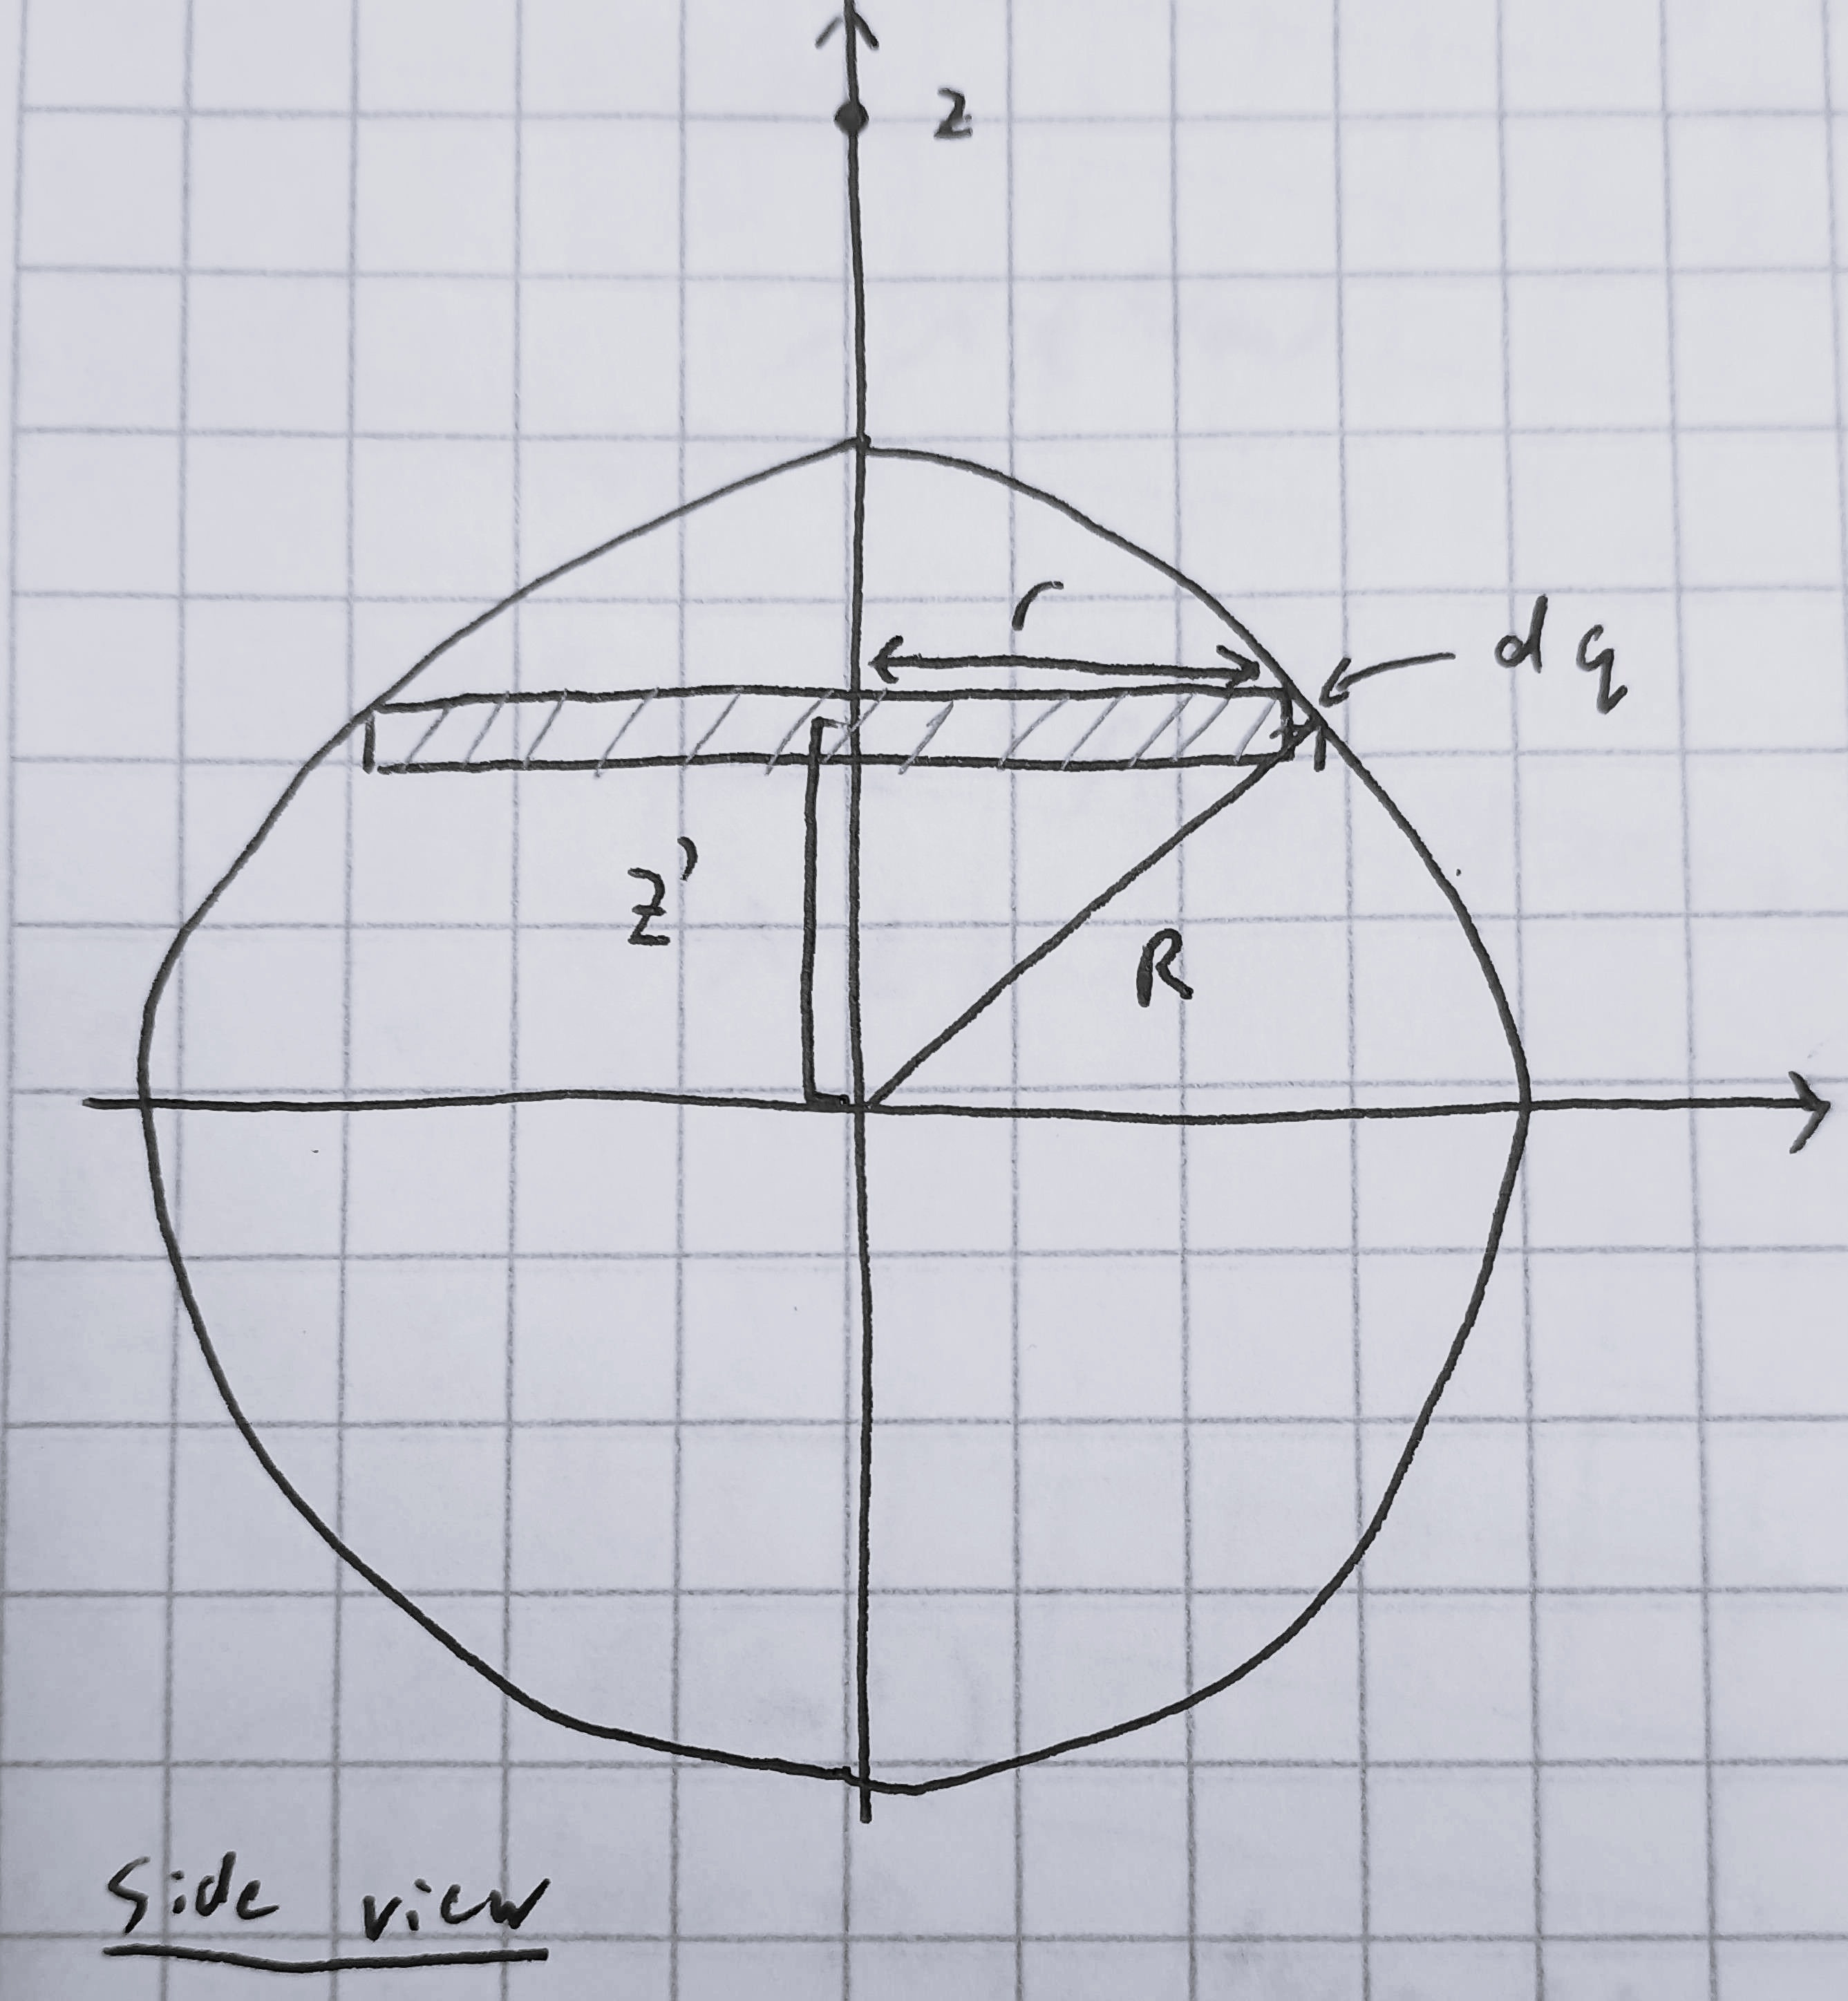 z
r
dq
z'
R
Side view